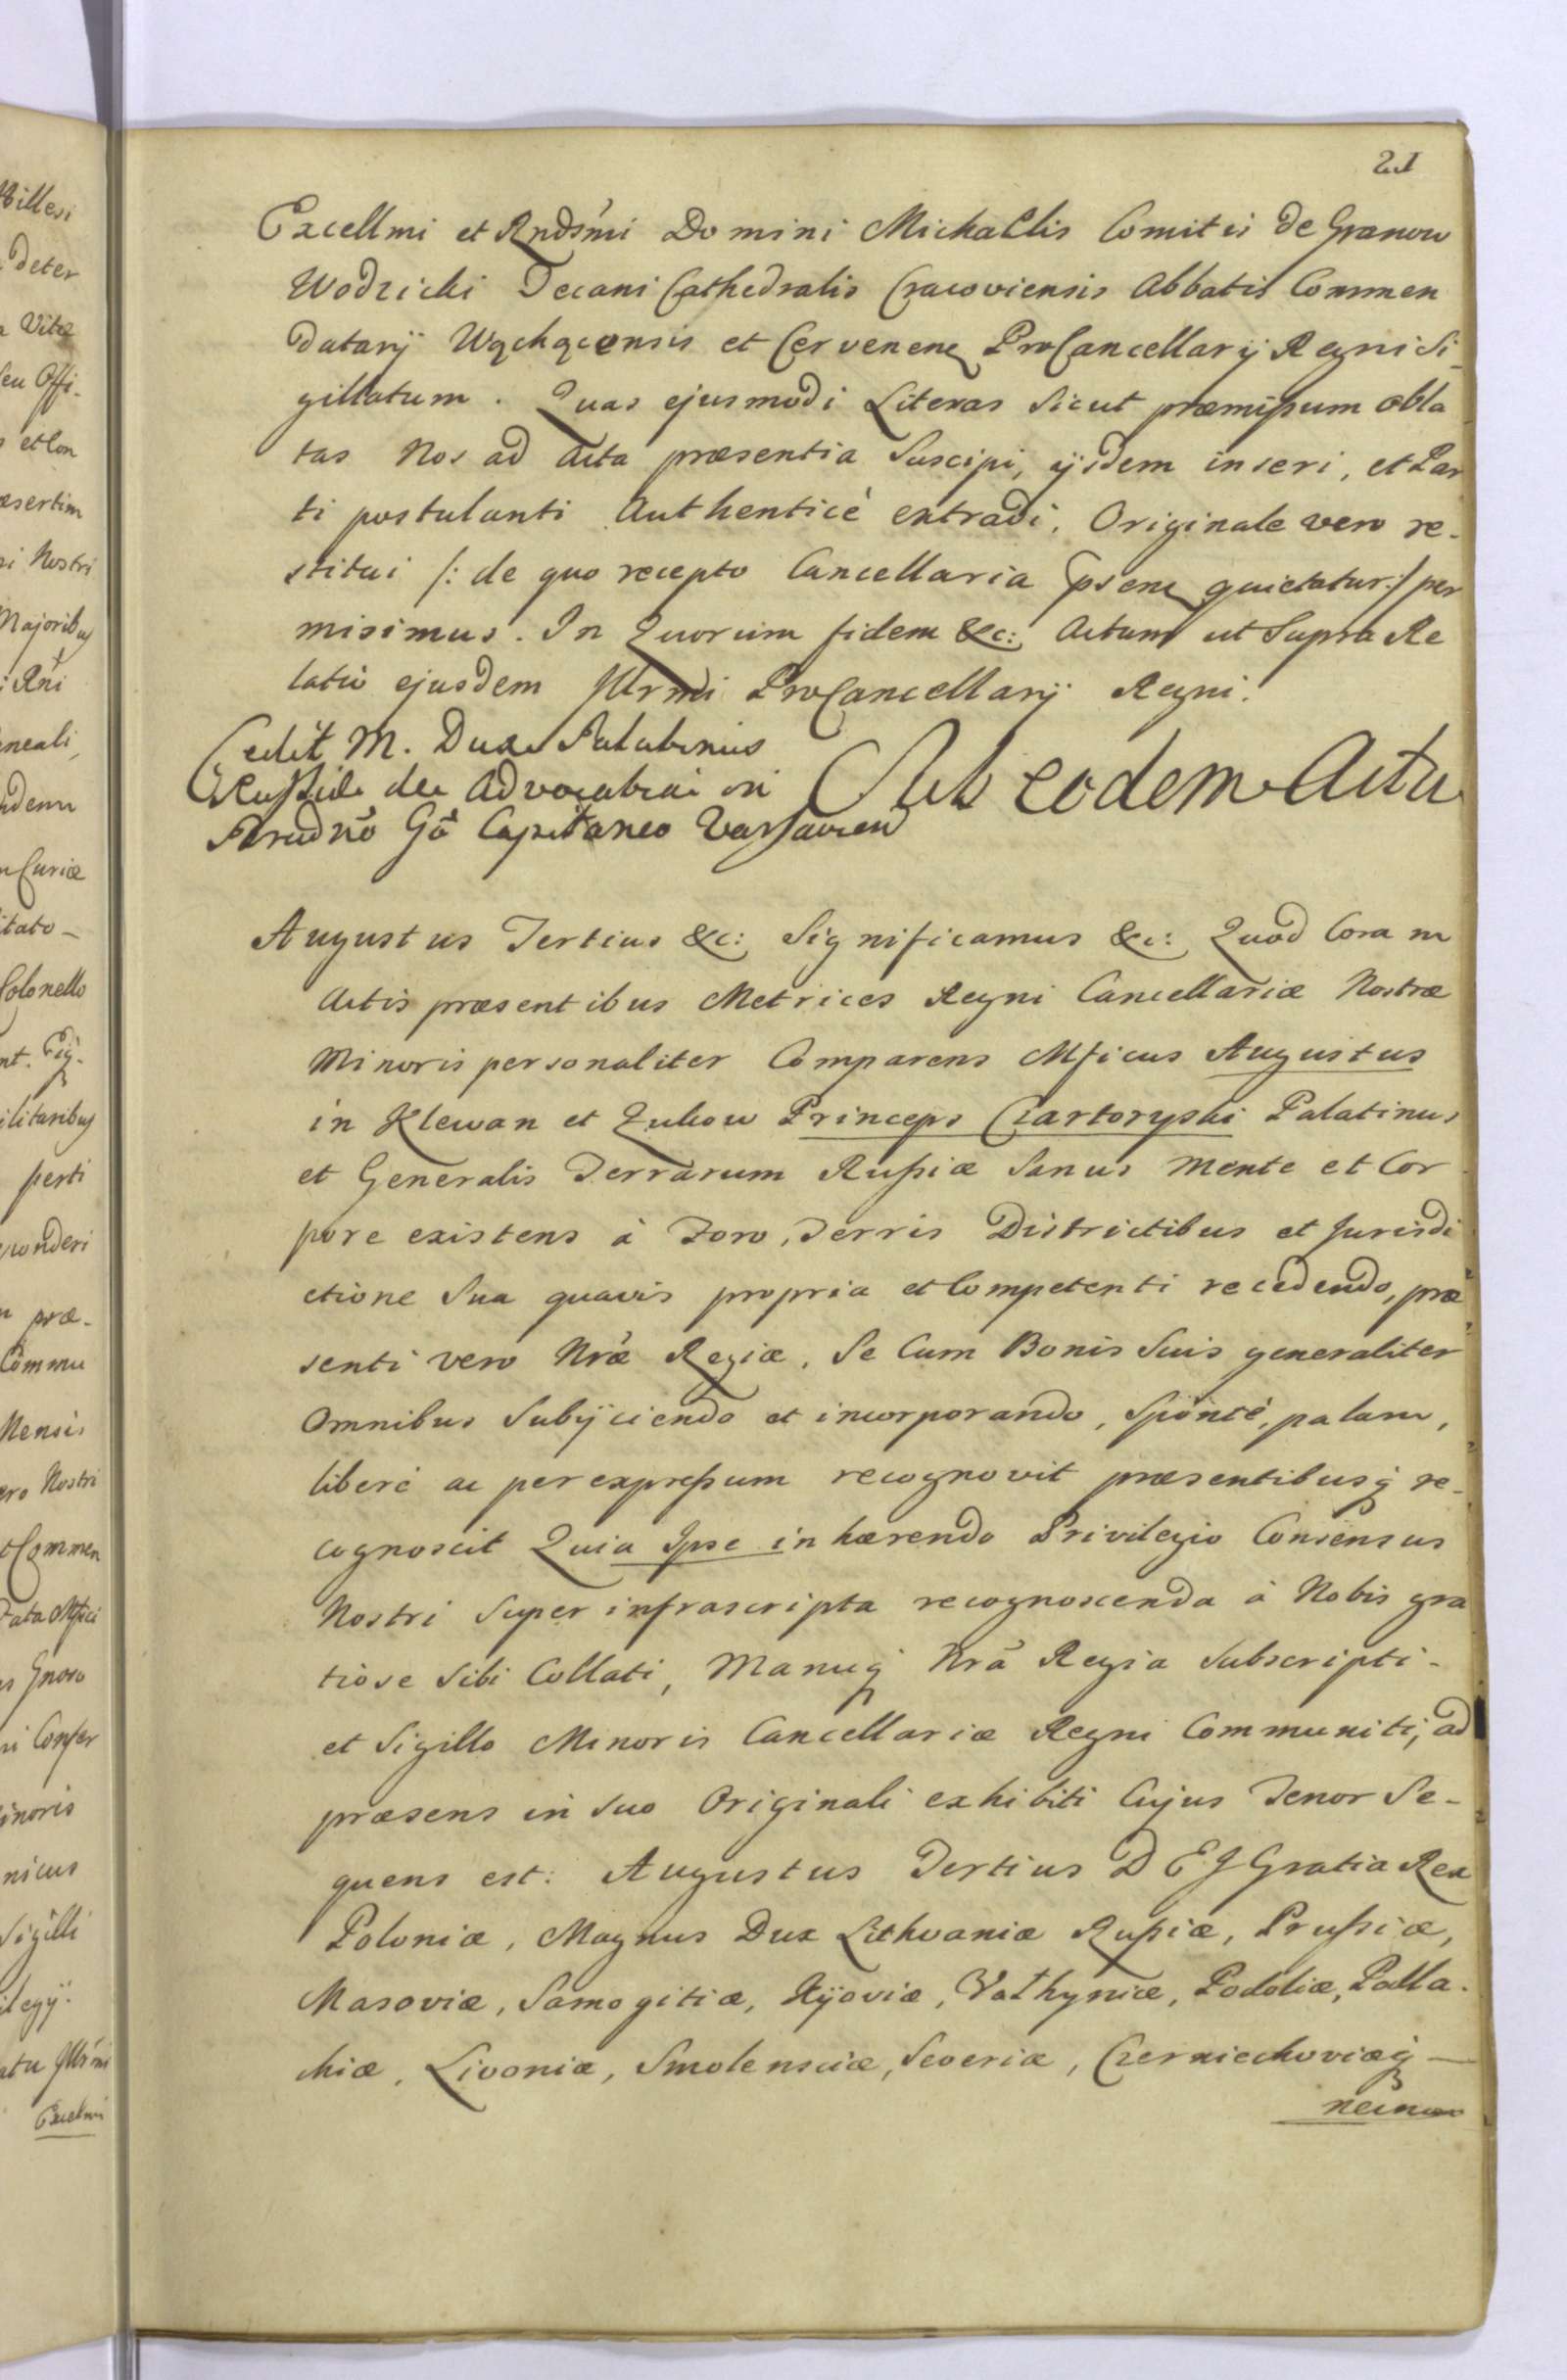 21
Excellmi et Rndsmi Domini Michaelis Comitis de Granow
Wodzicki Decani Cathedralis Cracoviensis Abbatis Commen
datarij Wąchqcensis et Cervenen ProCancellarij Regni Si_
gillatum. Quas ejusmodi Literas Sicut præmissum obla
tas Nos ad Acta præsentia Suscipi, ijsdem inseri, et Par
ti postulanti Authenticè extradi, Originale vero re_
stitui /: de quo recepto Cancellaria Ipsene quietatur :/ per
misimus. In Quorum fidem &c: Actum ut Supra Re
latio ejusdem Illrmi ProCancellarij Regni.
Cedit M. Dux Palatinus
Russiæ de Advocatiai in
Gō Capitaneo Varsavien
Sub eodem Actu
Augustus Tertius &c: Significamus &c: Quod Coram
Actis præsentibus Metrices Regni Cancellariæ Nostræ
Minoris personaliter Comparens Mficus Augustus
in Klewan et Zukow Princeps Czartoryski Palatinus
et Generalis Terrarum Russiæ Sanus Mente et Cor
pore existens à Foro, Terris Districtibus et Jurisdi
ctione Sua quavis propria et Competenti recedendo, præ
senti vero Nræ Regiæ, Se Cum Bonis Suis generaliter
Omnibus Subijciendo et incorporando, Spontè, palam,
liberè ac per expressum recognovit præsentibusq́ re_
cognoscit Quia Ipse inhærendo Privilegio Consensus
Nostri Super infrascripta recognoscenda à Nobis gra
tiose Sibi Collati, Manuq́ Nrã Regia Subscripti_
et Sigillo Minoris Cancellariæ Regni Communiti, ad
præsens in Suo Originali exhibiti Cujus Tenor Se_
quens est: Augustus Tertius DEJ Gratia Rex
Poloniæ, Magnus Dux Lithvaniæ Russiæ, Prussiæ,
Masoviæ, Samogitiæ, Kijoviæ, Vołhyniæ, Podoliæ, Podla_
chiæ, Livoniæ, Smolensciæ, Severiæ, Czerniechoviæq́ _
necnon